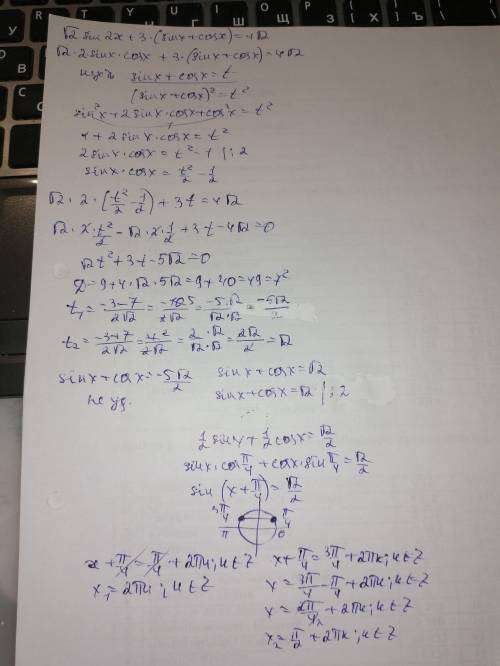 √2 sin 2x + 3·(sinx+cosx)=4√2
√2·2 sinx·cosx + 3·(sinx+cosx)=4√2
Пусть sinx+cosx=t
(sinx+cosx)²=t²
sin²x+2sinx·cosx+cos²x=t²
1+2sinx·cosx=t²
2sinx·cosx=t²-1 |:2
sinx·cosx=t²/2-1/2
√2·2·(t²/2-1/2)+3t=4√2
√2·2·t²/2-√2·2·1/2+3t-4√2=0
√2t²+3t-5√2=0
D=9+4·√2·5√2=9+40=49=7²
t₁=(-3-7)/(2√2)=-10 5/(2√2)=(-5·√2)/(√2·√2)=-5√2/2
t₂=(-3+7)/(2√2)=4 2/(2√2)=(2·√2)/(√2·√2)=2√2/2=√2
sinx+cosx=-5√2/2 sinx+cosx=√2
не уд. sinx+cosx=√2 |:2
1/2 sinx+1/2 cosx=√2/2
sinx·cos π/4+cosx·sin π/4=√2/2
sin(x+π/4)=√2/2
3π/4 π/4
π 0
x+π/4=π/4+2πk; k∈Z x+π/4=3π/4+2πk; k∈Z
x₁=2πk; k∈Z x=3π/4-π/4+2πk; k∈Z
x=2π/4 2+2πk; k∈Z
x₂=π/2+2πk; k∈Z